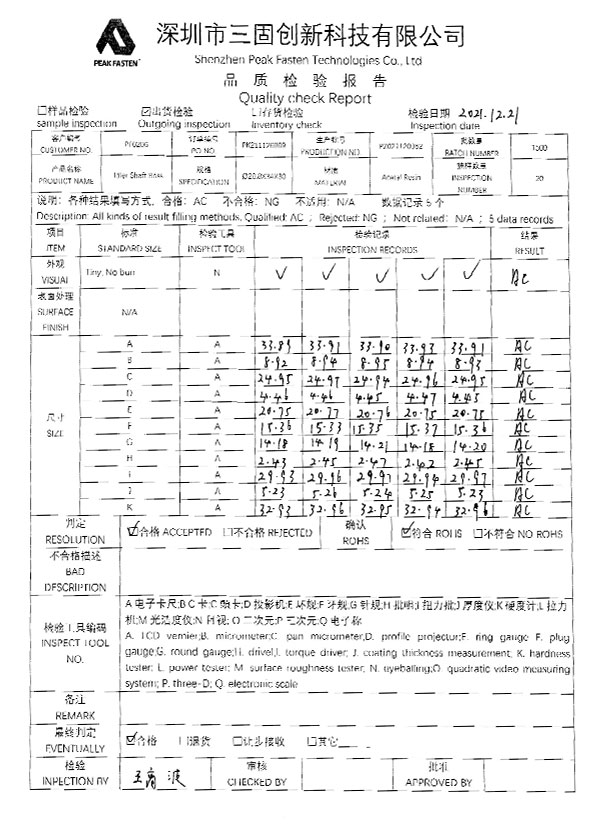 深圳市三固创新科技有限公司
PEAK FASTEN
Shenzhen Peak Fasten Technologies Co., Ltd
品质检验报告
Quality check Report
☐样品检验 ☑出货检验 ☐存货检验 检验日期 2021.12.21
sample inspection Outgoing inspection Inventory check Inspection date
客户编号 订单编号 生产单号 批数量
CUSTOMER NO. PO NO. PRODUCTION NO BATCH NUMBER 1500
产品名称 规格 材质 抽样数量
PRODUCT NAME SPECIFICATION MATERIAL Acetal Resin INSPECTION NUMBER 20
说明：各种结果填写方式，合格：AC 不合格：NG 不适用：N/A 数据记录 5 个
Description: All kinds of result filling methods, Qualified: AC ; Rejected: NG ; Not related: N/A ; 5 data records
项目 标准 检验工具 检验记录 结果
ITEM STANDARD SIZE INSPECT TOOL INSPECTION RECORDS RESULT
外观
VISUAL Tiny, No burr N ✓ ✓ ✓ ✓ ✓ AC
表面处理
SURFACE N/A
FINISH
A A 33.89 33.91 33.90 33.93 33.91 AC
B A 8.92 8.94 8.95 8.94 8.93 AC
C A 24.95 24.97 24.94 24.96 24.95 AC
D A 4.46 4.46 4.45 4.47 4.45 AC
E A 20.75 20.77 20.76 20.75 20.75 AC
尺寸 F A 15.36 15.33 15.35 15.37 15.36 AC
SIZE G A 14.18 14.19 14.21 14.18 14.20 AC
H A 2.43 2.45 2.47 2.42 2.45 AC
I A 29.93 29.96 29.97 29.94 29.97 AC
J A 5.23 5.26 5.24 5.25 5.23 AC
K A 32.93 32.96 32.95 32.94 32.96 AC
判定 ☑合格 ACCEPTED ☐不合格 REJECTED 确认 ☑符合 ROHS ☐不符合 NO ROHS
RESOLUTION ROHS
不合格描述
BAD
DESCRIPTION
A 电子卡尺;B C 卡;C 头卡;D 投影机;E 环规;F 牙规;G 针规;H 批咀;I 扭力批;J 厚度仪;K 硬度计;L 拉力
检验工具编码 机;M 光洁度仪;N 目视; O 二次元;P 三次元;Q 电子称
INSPECT TOOL A. LCD vernier;B. micrometer;C. pan micrometer;D. profile projector;E. ring gauge F. plug
NO. gauge;G. round gauge;H. drivel,I. torque driver; J. coating thickness measurement; K. hardness
tester; L. power tester; M. surface roughness tester; N. eyeballing;O. quadratic video measuring
system; P. three-D; Q. electronic scale
备注
REMARK
最终判定 ☑合格 ☐退货 ☐让步接收 ☐其它
EVENTUALLY
检验 审核 批准
INPECTION BY CHECKED BY APPROVED BY